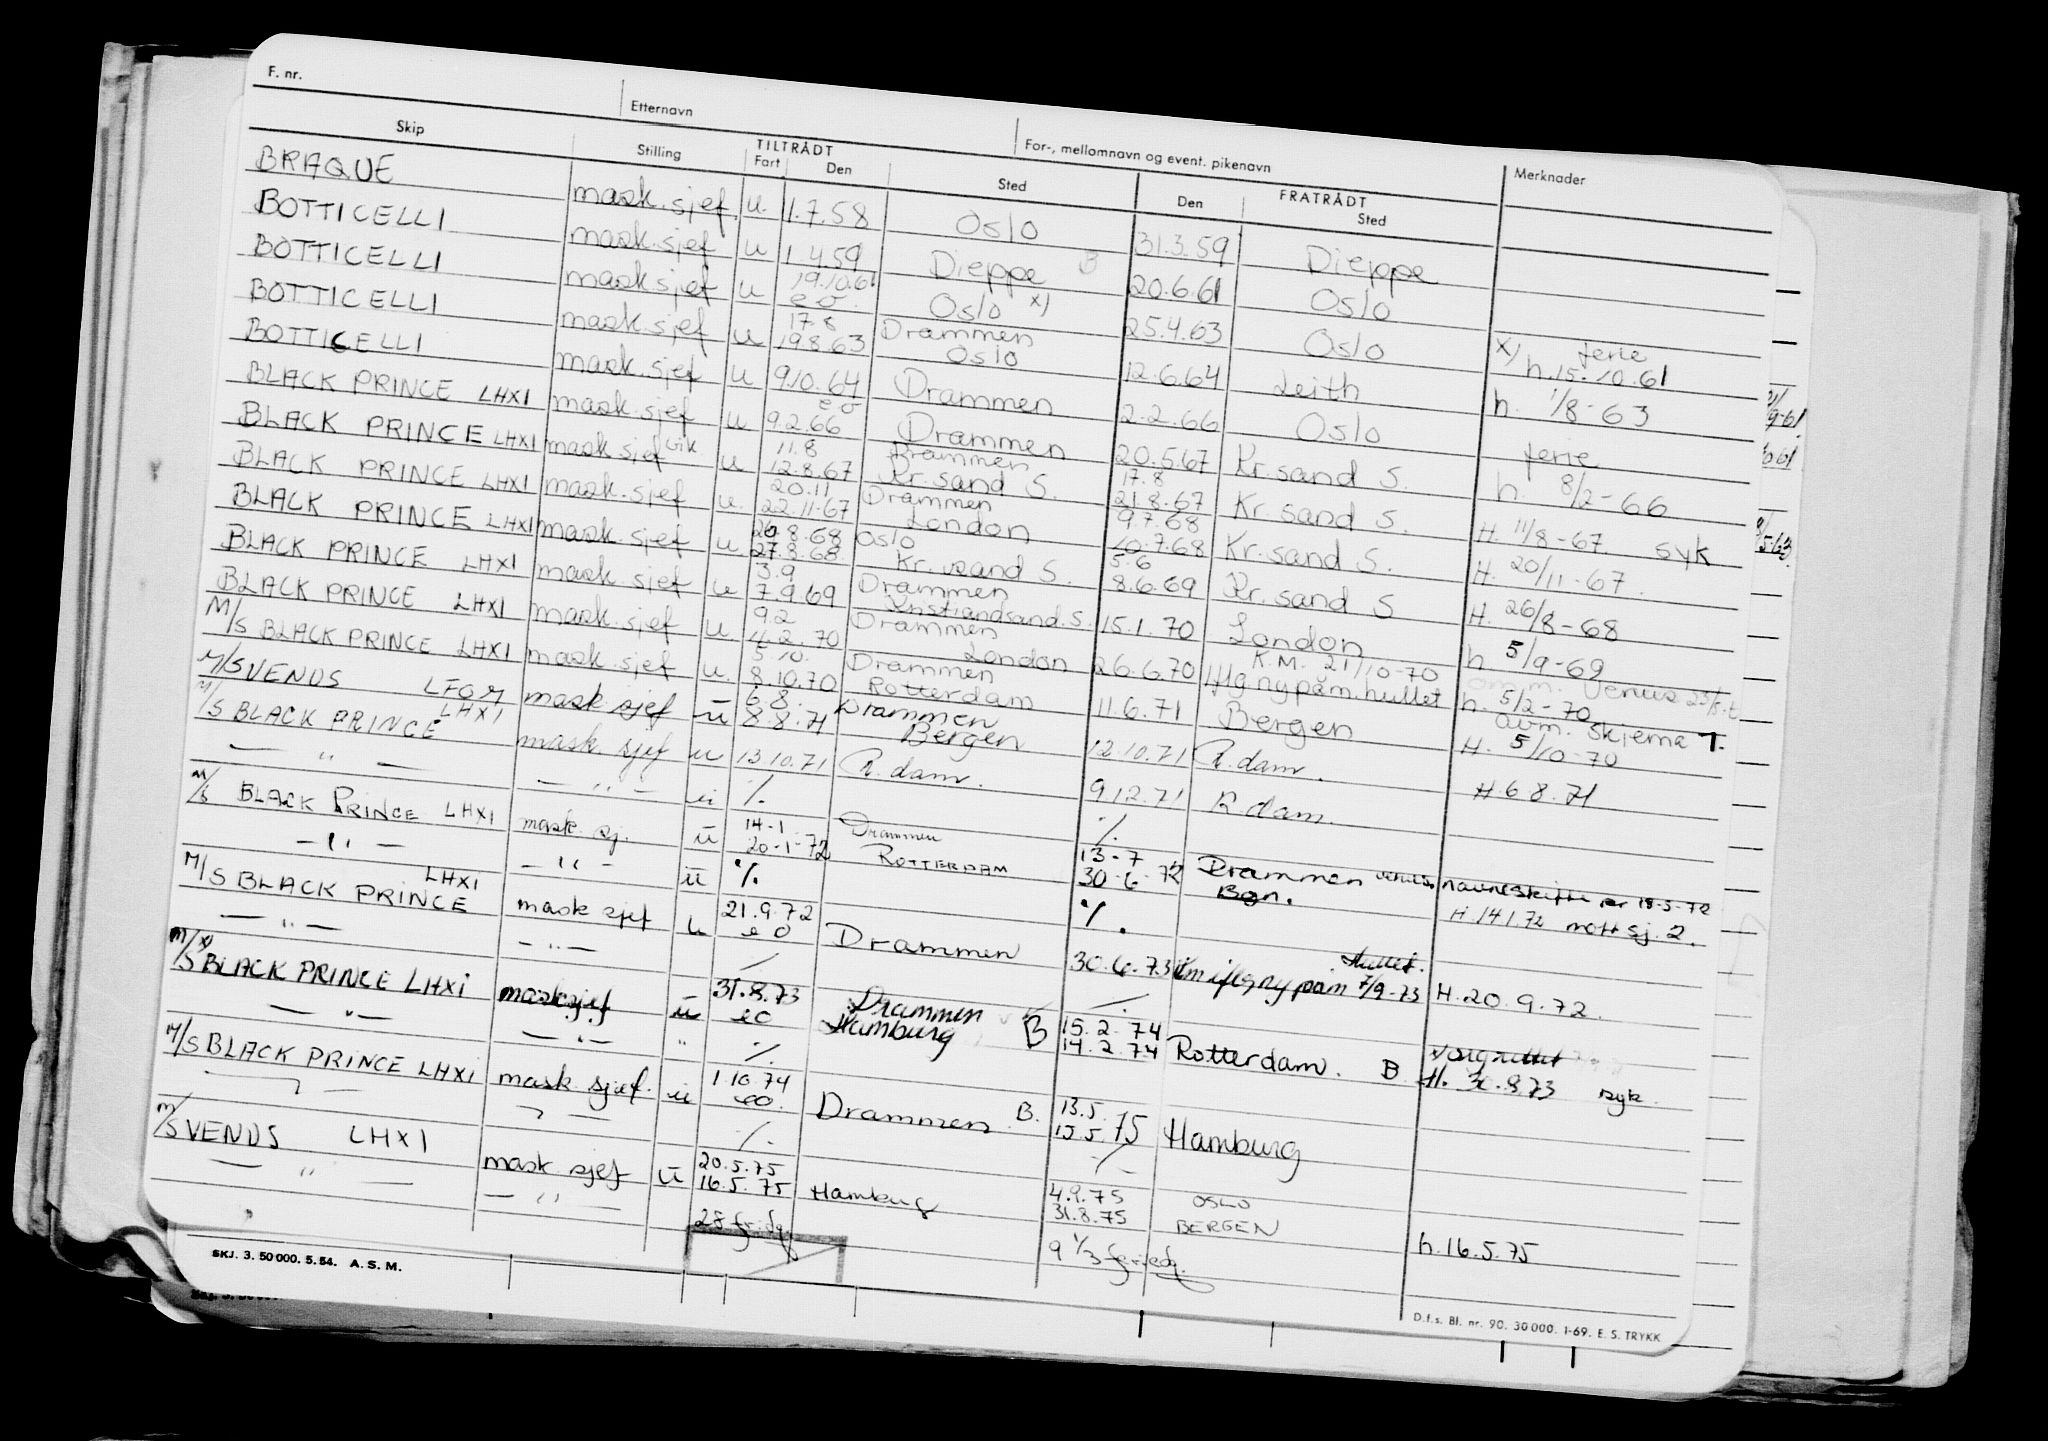 F. nr. Etternavn For-, mellomnavn og event. pikenavn Merknader
Skip Stilling TILTRÅDT Fart Den Sted FRATRÅDT Den Sted
BRAQUE mask. sjef. u. 1.7.58 Oslo 31.3.59 Dieppe
BOTTICELLI mask. sjef u 1.4.59 Dieppe B 20.6.61 Oslo
BOTTICELLI mask sjef u 19.10.61 e o. Oslo x) 25.4.63 Oslo x) ferie h. 15.10.61
BOTTICELLI mask sjef u 17.8 19.8.63 Drammen Oslo 12.6.64 Leith h. 1/8-63
BOTTICELLI mask. sjef u 9.10.64 e o Drammen 2.2.66 Oslo
BLACK PRINCE LHXI mask. sjef u 9.2.66 Drammen 20.5.67 Kr. sand S. ferie h. 8/2-66
BLACK PRINCE LHXI mask sjef vik. u 11.8 12.8.67 Drammen Kr. sand S. 17.8 21.8.67 Kr. sand S. H. 11/8-67 syk
BLACK PRINCE LHXI mask. sjef u. 20.11 22.11.67 Drammen London 9.7.68 10.7.68 Kr. sand S. H. 20/11-67.
BLACK PRINCE LHXI mask. sjef u. 26.8.68 27.8.68 Oslo Kr. sand S. 5.6 8.6.69 Kr. sand S H. 26/8-68
BLACK PRINCE LHXI mask. sjef u 3.9 7.9.69 Drammen Kristiandsand. S. 15.1.70 London h 5/9-69
BLACK PRINCE LHXI mask. sjef u. 9.2 4.2.70 Drammen London 26.6.70 K.M. 21/10-70 iflg ny påm. hullet Venus h. 5/2-70
M/S BLACK PRINCE LHXI mask. sjef u. 5.10. 8.10.70 Drammen Rotterdam 11.6.71 Bergen avm. skjema T. H. 5/10-70
M/S VENUS mask sjef u 6.8. 8.8.71 Drammen Bergen 12.10.71 R.dam. H 6 8.71
M/S BLACK PRINCE LHXI mask sjef u 13.10.71 R. dam. 9.12.71 R dam.
— " — — " — u ./. ./.
M/S BLACK PRINCE LHXI mask. sj. u 14-1 20-1-72 Drammen ROTTERDAM 13-7 30-6-72 Drammen Bgn. navneskifte 15-5-72 H. 14 1.72 mott sj. 2.
— " — — " — u ./. ./.
M/S BLACK PRINCE LHXI mask sjef u 21.9.72 e o Drammen 30.6.73 iflg ny påm hullet. 7/9-73 H. 20.9.72.
— " — — " — / /
M/S x) BLACK PRINCE LHXI mask sjef u 31.8.73 e o Drammen Hamburg B 15.2.74 14.2.74 Rotterdam. B H. 30.8 73 syk.
— " — — " — " ./.
M/S BLACK PRINCE LHXI mask. sjef. u 1.10.74 e o. Drammen B. 13.5. 15.5.75 Hamburg
— " — — " — ./. ./.
M/S VENUS LHXI mask sjef u 20.5.75 16.5.75 Hamburg 4.9.75 31.8.75 OSLO BERGEN h. 16.5.75
— " — — " —
28 fridg. 9 1/3 feriedg.
SKJ. 3. 50 000. 5. 54. A. S. M.
D.f.s. Bl. nr. 90. 30 000. 1-69. E. S. TRYKK